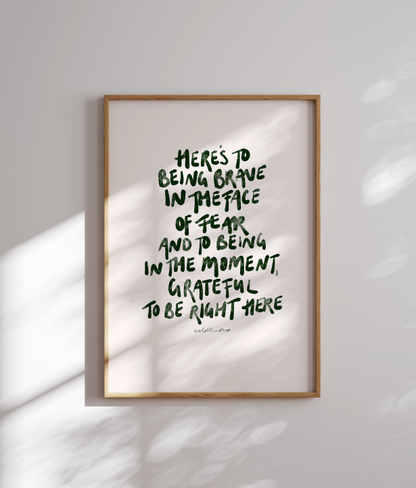 HERE'S TO
BEING BRAVE
IN THE FACE
OF FEAR
AND TO BEING
IN THE MOMENT,
GRATEFUL
TO BE RIGHT HERE